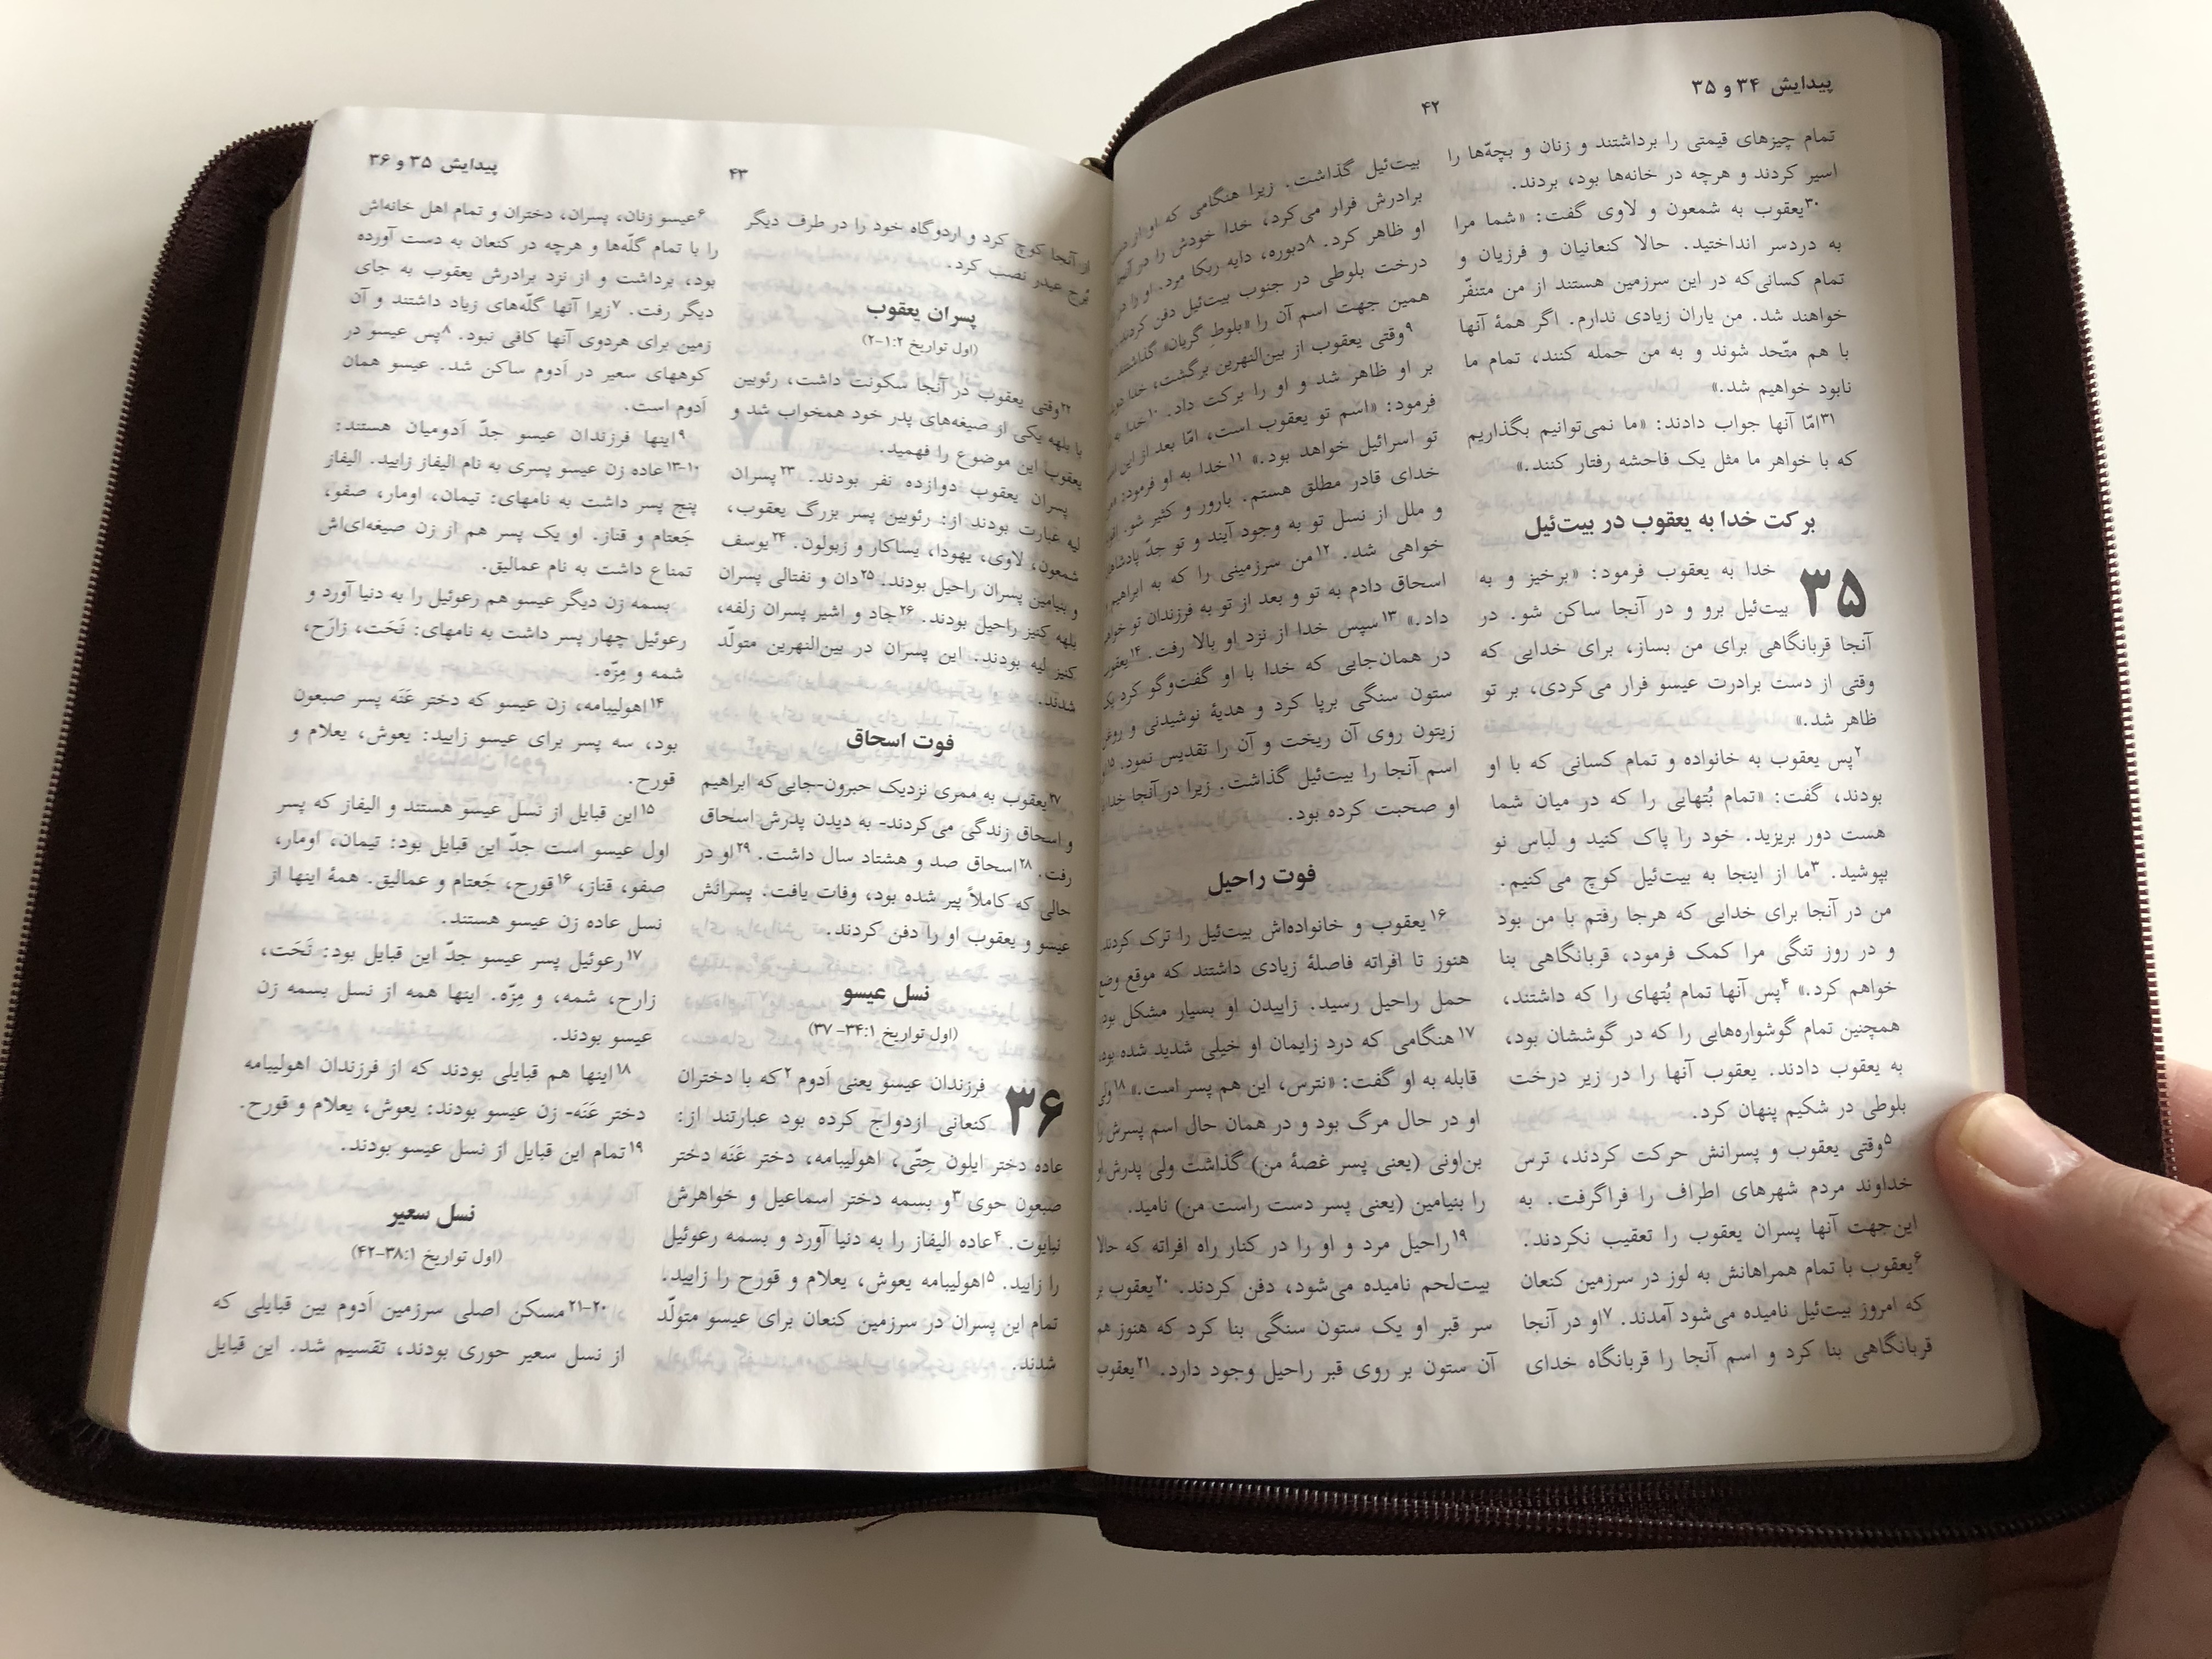 پیدایش ۳۴ و ۳۵
۴۲
تمام چیزهای قیمتی را برداشتند و زنان و بچه‌ّها را
اسیر کردند و هرچه در خانه‌ها بود، بردند.
۳۰یعقوب به شمعون و لاوی گفت: «شما مرا
به دردسر انداختید. حالا کنعانیان و فرزیان و
تمام کسانی‌که در این سرزمین هستند از من متنفّر
خواهند شد. من یاران زیادی ندارم. اگر همهٔ آنها
با هم متّحد شوند و به من حمله کنند، تمام ما
نابود خواهیم شد.»
۳۱امّا آنها جواب دادند: «ما نمی‌توانیم بگذاریم
که با خواهر ما مثل یک فاحشه رفتار کنند.»
برکت خدا به یعقوب در بیت‌ئیل
۳۵ خدا به یعقوب فرمود: «برخیز و به
بیت‌ئیل برو و در آنجا ساکن شو. در
آنجا قربانگاهی برای من بساز، برای خدایی که
وقتی از دست برادرت عیسو فرار می‌کردی، بر تو
ظاهر شد.»
۲پس یعقوب به خانواده و تمام کسانی که با او
بودند، گفت: «تمام بُتهایی را که در میان شما
هست دور بریزید. خود را پاک کنید و لباس نو
بپوشید. ۳ما از اینجا به بیت‌ئیل کوچ می‌کنیم.
من در آنجا برای خدایی که هرجا رفتم با من بود
و در روز تنگی مرا کمک فرمود، قربانگاهی بنا
خواهم کرد.» ۴پس آنها تمام بُتهای را که داشتند،
همچنین تمام گوشواره‌هایی را که در گوششان بود،
به یعقوب دادند. یعقوب آنها را در زیر درخت
بلوطی در شکیم پنهان کرد.
۵وقتی یعقوب و پسرانش حرکت کردند، ترس
خداوند مردم شهرهای اطراف را فراگرفت. به
این‌جهت آنها پسران یعقوب را تعقیب نکردند.
۶یعقوب با تمام همراهانش به لوز در سرزمین کنعان
که امروز بیت‌ئیل نامیده می‌شود آمدند. ۷او در آنجا
قربانگاهی بنا کرد و اسم آنجا را قربانگاه خدای
بیت‌ئیل گذاشت. زیرا هنگامی که او از
برادرش فرار می‌کرد، خدا خودش را در آنجا
او ظاهر کرد. ۸دبوره، دایه ربکا مرد. او را در
درخت بلوطی در جنوب بیت‌ئیل دفن کردند
همین جهت اسم آن را «بلوطِ گریان» گذاشتند
۹وقتی یعقوب از بین‌النهرین برگشت، خدا
بر او ظاهر شد و او را برکت داد. ۱۰خدا
فرمود: «اسم تو یعقوب است، امّا بعد از این
تو اسرائیل خواهد بود.» ۱۱خدا به او فرمود:
خدای قادر مطلق هستم. بارور و کثیر شو.
و ملل از نسل تو به وجود آیند و تو جدّ
خواهی شد. ۱۲من سرزمینی را که به ابراهیم
اسحاق دادم به تو و بعد از تو به فرزندان تو
داد.» ۱۳سپس خدا از نزد او بالا رفت. ۱۴یعقوب
در همان‌جایی که خدا با او گفت‌وگو کرد
ستون سنگی برپا کرد و هدیهٔ نوشیدنی و
زیتون روی آن ریخت و آن را تقدیس نمود.
اسم آنجا را بیت‌ئیل گذاشت. زیرا در آنجا
او صحبت کرده بود.
فوت راحیل
۱۶یعقوب و خانواده‌اش بیت‌ئیل را ترک کردند
هنوز تا افراته فاصلهٔ زیادی داشتند که موقع وضع
حمل راحیل رسید. زاییدن او بسیار مشکل
۱۷هنگامی که درد زایمان او خیلی شدید شده بود،
قابله به او گفت: «نترس، این هم پسر است.» ۱۸ولی
او در حال مرگ بود و در همان حال اسم پسرش را
بن‌اونی (یعنی پسر غصهٔ من) گذاشت ولی پدرش
را بنیامین (یعنی پسر دست راست من) نامید.
۱۹راحیل مرد و او را در کنار راه افراته که حالا
بیت‌لحم نامیده می‌شود، دفن کردند. ۲۰یعقوب
سر قبر او یک ستون سنگی بنا کرد که هنوز هم
آن ستون بر روی قبر راحیل وجود دارد. ۲۱یعقوب
۴۳
پیدایش ۳۵ و ۳۶
از آنجا کوچ کرد و اردوگاه خود را در طرف دیگر
بُرج عیدر نصب کرد.
پسران یعقوب
(اول تواریخ ۱:۲-۲)
۲۲وقتی یعقوب در آنجا سکونت داشت، رئوبین
با بلهه یکی از صیغه‌های پدر خود همخواب شد و
یعقوب این موضوع را فهمید.
پسران یعقوب دوازده نفر بودند. ۲۳پسران
لیه عبارت بودند از: رئوبین پسر بزرگ یعقوب،
شمعون، لاوی، یهودا، یساکار و زبولون. ۲۴یوسف
و بنیامین پسران راحیل بودند. ۲۵دان و نفتالی پسران
بلهه کنیز راحیل بودند. ۲۶جاد و اشیر پسران زلفه،
کنیز لیه بودند. این پسران در بین‌النهرین متولّد
شدند.
فوت اسحاق
۲۷یعقوب به ممری نزدیک حبرون-جایی‌که ابراهیم
و اسحاق زندگی می‌کردند- به دیدن پدرش اسحاق
رفت. ۲۸اسحاق صد و هشتاد سال داشت. ۲۹او در
حالی که کاملاً پیر شده بود، وفات یافت. پسرانش
عیسو و یعقوب او را دفن کردند.
نسل عیسو
(اول تواریخ ۳۴:۱- ۳۷)
۳۶ فرزندان عیسو یعنی اَدوم ۲که با دختران
کنعانی ازدواج کرده بود عبارتند از:
عاده دختر ایلون حِتّی، اهولیبامه، دختر عَنَه دختر
صبعون حوی ۳و بسمه دختر اسماعیل و خواهرش
نبایوت. ۴عاده الیفاز را به دنیا آورد و بسمه رعوئیل
را زایید. ۵اهولیبامه یعوش، یعلام و قورح را زایید.
تمام این پسران در سرزمین کنعان برای عیسو متولّد
شدند.
۶عیسو زنان، پسران، دختران و تمام اهل خانه‌اش
را با تمام گلّه‌ها و هرچه در کنعان به دست آورده
بود، برداشت و از نزد برادرش یعقوب به جای
دیگر رفت. ۷زیرا آنها گلّه‌های زیاد داشتند و آن
زمین برای هردوی آنها کافی نبود. ۸پس عیسو در
کوههای سعیر در اَدوم ساکن شد. عیسو همان
اَدوم است.
۹اینها فرزندان عیسو جدّ اَدومیان هستند:
۱۰-۱۳عاده زن عیسو پسری به نام الیفاز زایید. الیفاز
پنج پسر داشت به نامهای: تیمان، اومار، صفو،
جَعتام و قناز. او یک پسر هم از زن صیغه‌ای‌اش
تمناع داشت به نام عمالیق.
بسمه زن دیگر عیسو هم رعوئیل را به دنیا آورد و
رعوئیل چهار پسر داشت به نامهای: نَحَت، زارَح،
شمه و مِزّه.
۱۴اهولیبامه، زن عیسو که دختر عَنَه پسر صبعون
بود، سه پسر برای عیسو زایید: یعوش، یعلام و
قورح.
۱۵این قبایل از نسل عیسو هستند و الیفاز که پسر
اول عیسو است جدّ این قبایل بود: تیمان، اومار،
صفو، قناز، ۱۶قورح، جَعتام و عمالیق. همهٔ اینها از
نسل عاده زن عیسو هستند.
۱۷رعوئیل پسر عیسو جدّ این قبایل بود: نَحَت،
زارح، شمه، و مِزّه. اینها همه از نسل بسمه زن
عیسو بودند.
۱۸اینها هم قبایلی بودند که از فرزندان اهولیبامه
دختر عَنَه- زن عیسو بودند: یعوش، یعلام و قورح.
۱۹تمام این قبایل از نسل عیسو بودند.
نسل سعیر
(اول تواریخ ۳۸:۱-۴۲)
۲۰-۲۱مسکن اصلی سرزمین اَدوم بین قبایلی که
از نسل سعیر حوری بودند، تقسیم شد. این قبایل